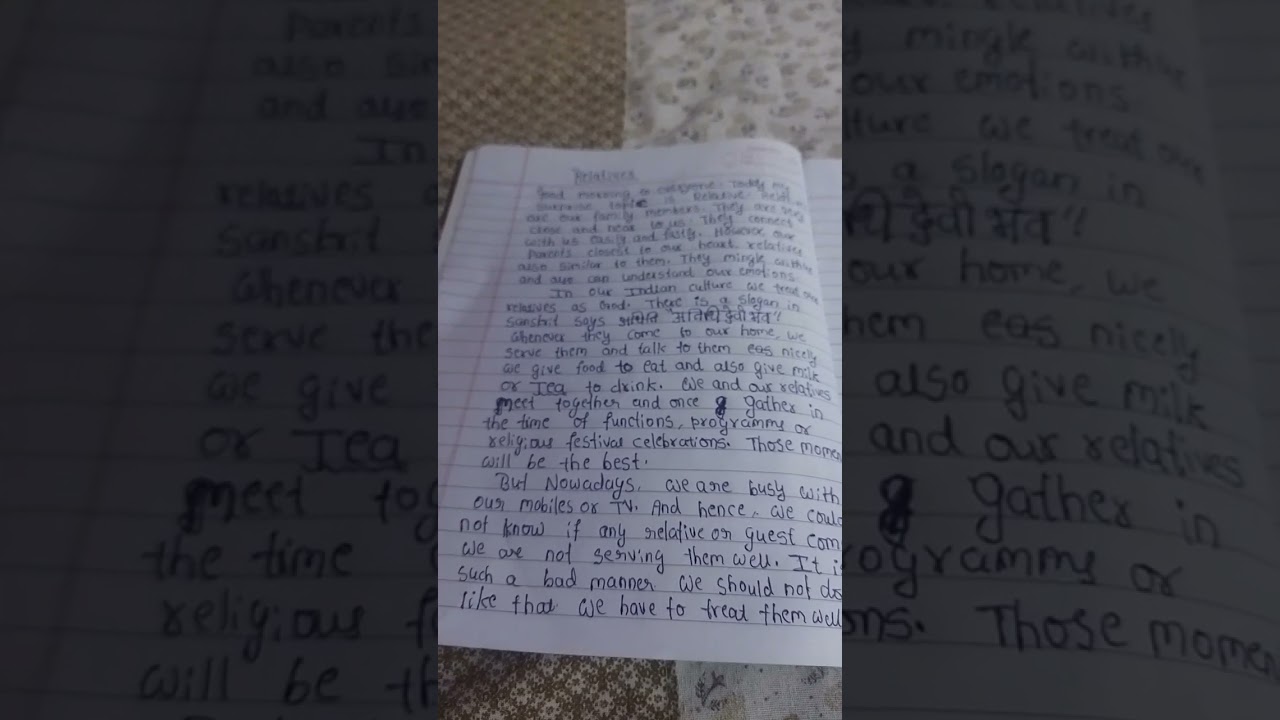 Relatives
Good morning to everyone. Today my
surprise topic is Relative.
are our family members. They are very
close and near to us. They connect
with us easily and fastly. However, our
parents closest to our heart. relatives
also similar to them. They mingle with
and aye can understand our emotions.
In our Indian culture we treat our
relatives as God. There is a slogan in
Sanskrit says अथिति अतिथी देवी भव"
Whenever they come to our home, we
serve them and talk to them eas nicely
we give food to eat and also give milk
or Tea to drink. We and our relatives
meet together and once gather in
the time of functions, programms or
religious festival celebrations. Those momen
will be the best.
But Nowadays, we are busy with
our mobiles or TV. And hence, we could
not know if any relative or guest com
we are not serving them well. It i
such a bad manner we should not do
like that we have to treat them well